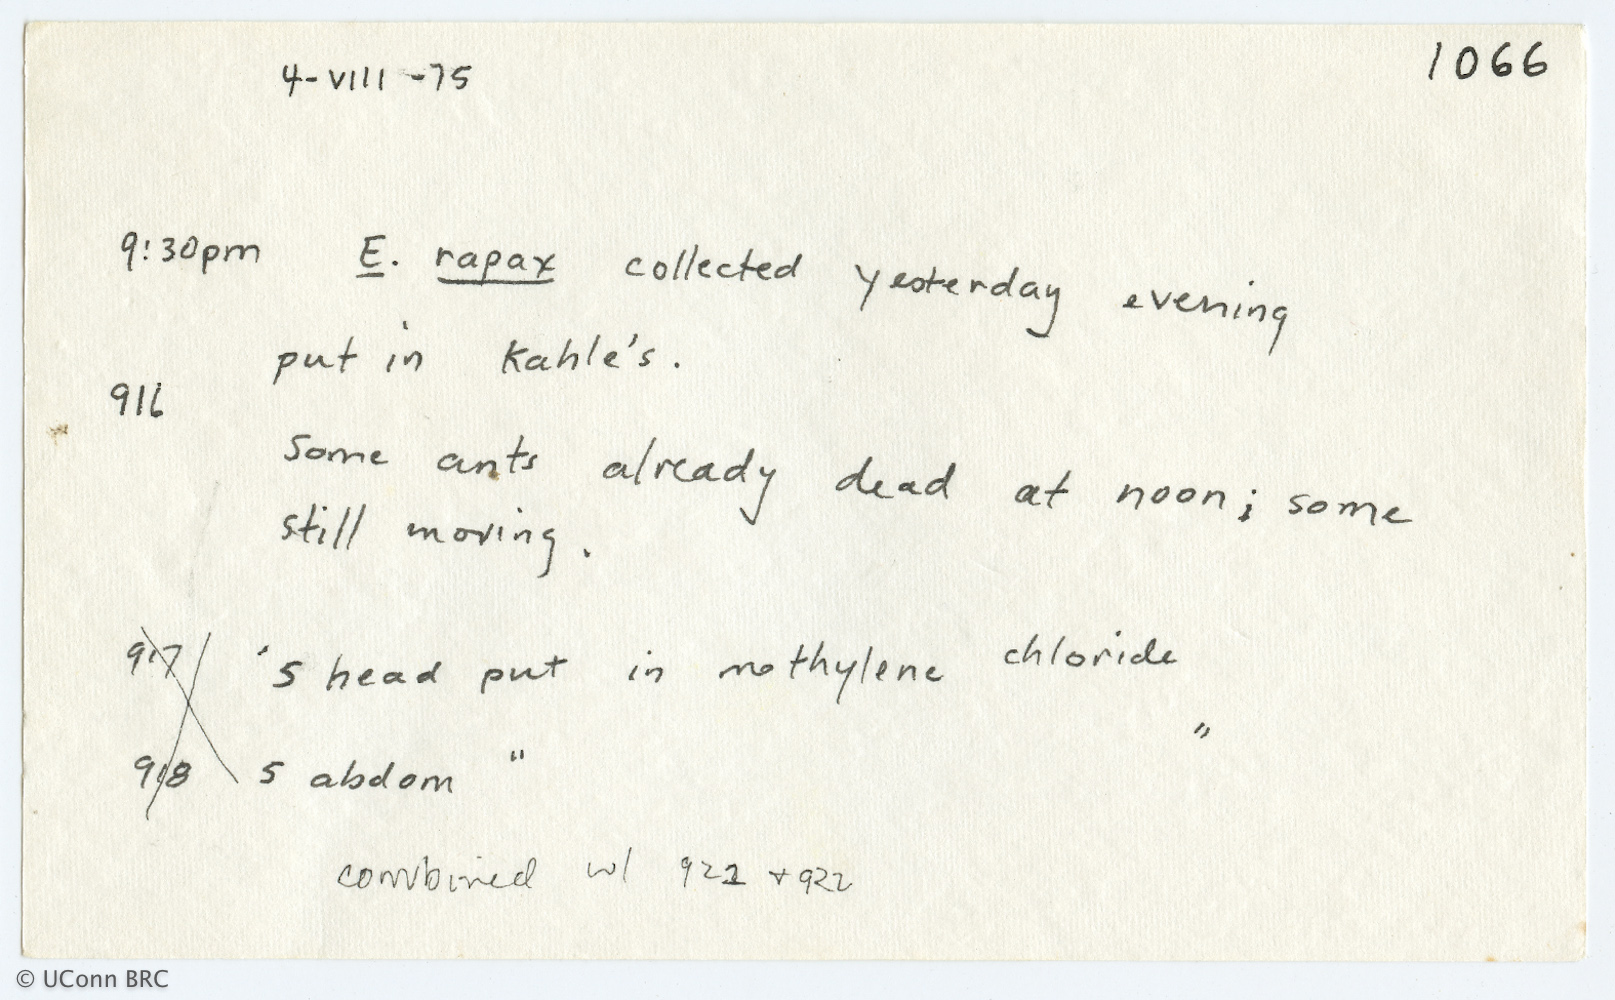 1066
4-VIII-75
9:30pm E. rapax collected yesterday evening
put in Kahle's.
916
Some ants already dead at noon; some
still moving.
917 5 head put in methylene chloride
918 5 abdom " "
combined w/ 921 + 922
© UConn BRC